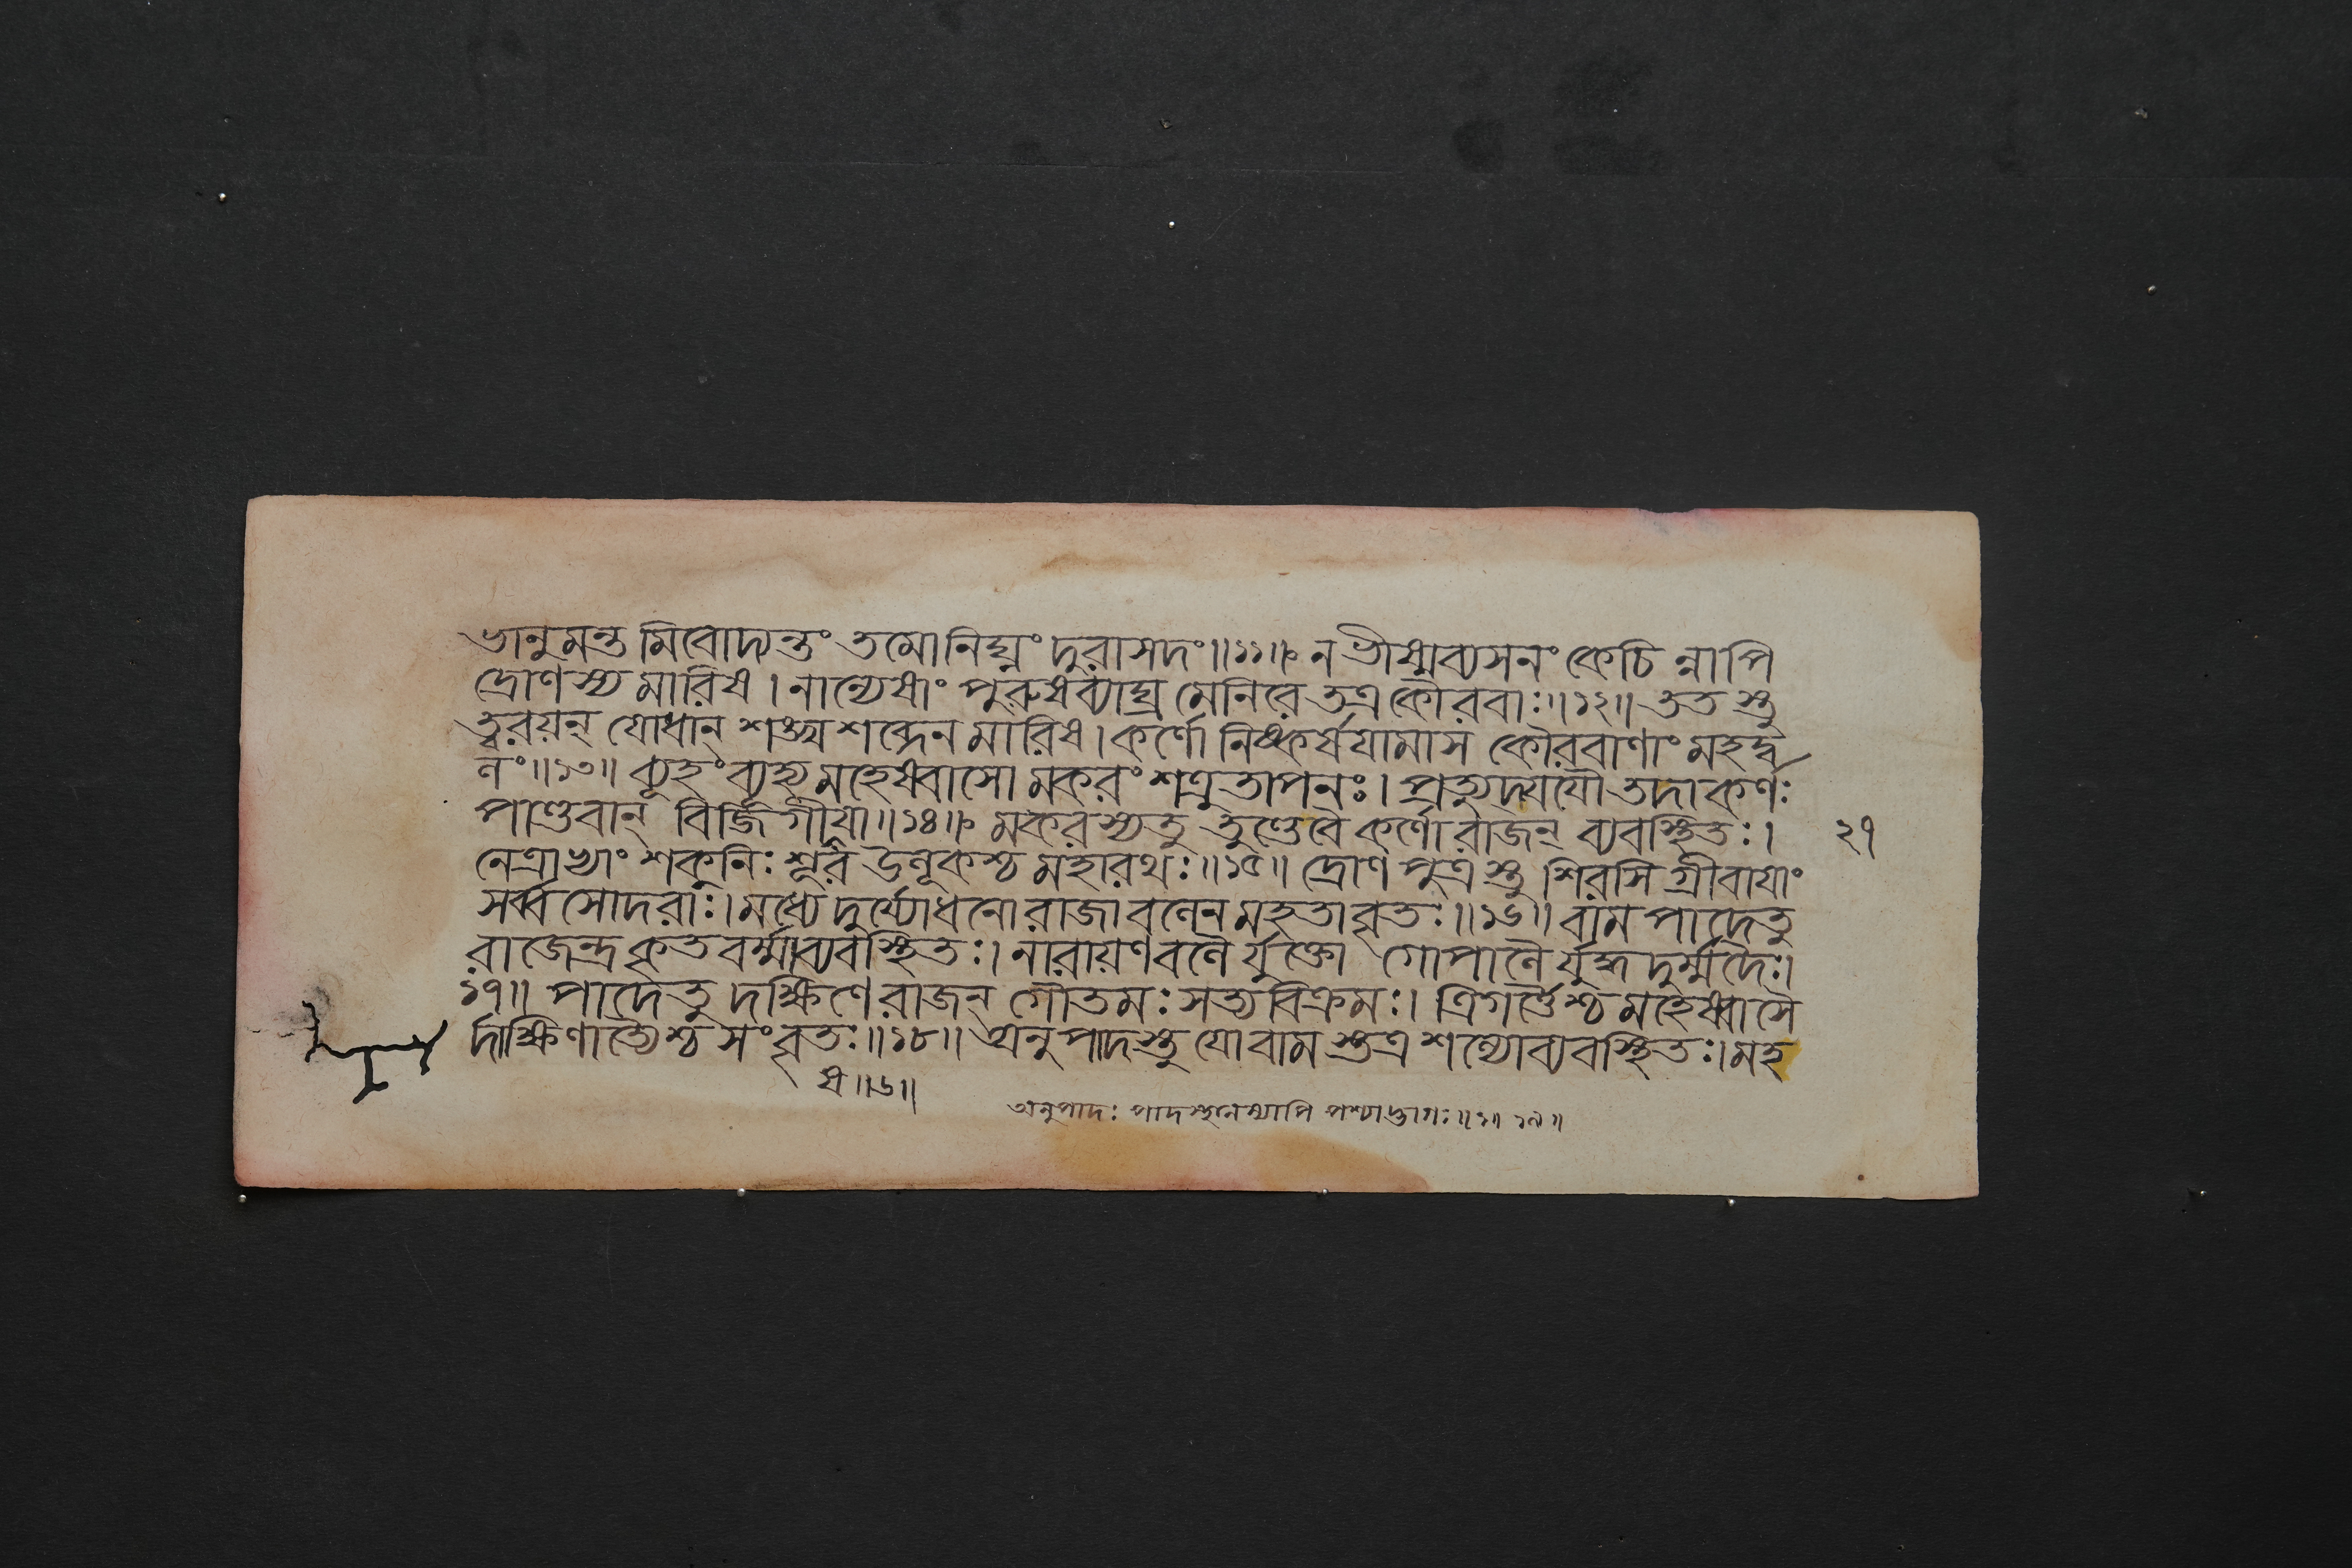 ভানুমন্ত মিবোদ্যন্তং তমোনিঘ্নং দুরাসদং॥১১॥ ন ভীষ্মব্যসনং কেচি ন্নাপি
দ্রোণস্য মারিষ। নান্যেষাং পুরুষব্যাঘ্র মেনিরে তত্র কৌরবাঃ॥১২॥ তত স্তু
ত্বরয়ন্ যোধান্ শঙ্খ শব্দেন মারিষ। কর্ণো নিষ্কর্ষযামাস কৌরবাণাং মহদ্ব
লং॥১৩॥ ব্যূহং ব্যূহ্য মহেষ্বাসো মকরং শত্রুতাপনঃ। প্রত্যুদ্যযৌ তদা কর্ণঃ
পাণ্ডবান্ বির্জিগীষা॥১৪॥ মকরস্য তু তুণ্ডে বৈ কর্ণো রাজন্ ব্যবস্থিতঃ।
নেত্রাভ্যাং শকুনিঃ শূর উলূকশ্চ মহারথঃ॥১৫॥ দ্রোণ পুত্র স্তু শিরসি গ্রীবাযাং
সর্ব্ব সোদরাঃ। মধ্যে দুর্য্যোধনো রাজা বলেন মহতা বৃতঃ॥১৬॥ বাম পাদে তু
রাজেন্দ্র কৃতবর্ম্মা ব্যবস্থিতঃ। নারায়ণ বলৈ র্যুক্তো গোপালৈ র্যুদ্ধ দুর্ম্মদৈঃ।
১৭॥ পাদে তু দক্ষিণে রাজন্ গৌতমঃ সত্য বিক্রমঃ। ত্রিগর্ত্তৈশ্চ মহেষ্বাসৈ
র্দাক্ষিণাত্যৈশ্চ সংবৃতঃ॥১৮॥ অনুপাদস্তু যো বাম স্তত্র শল্যো ব্যবস্থিতঃ। মহ
২৭
ষ॥৬॥
অনুপাদঃ পাদস্থানস্যাপি পশ্চাদ্ভাগঃ॥১॥ ১৯॥